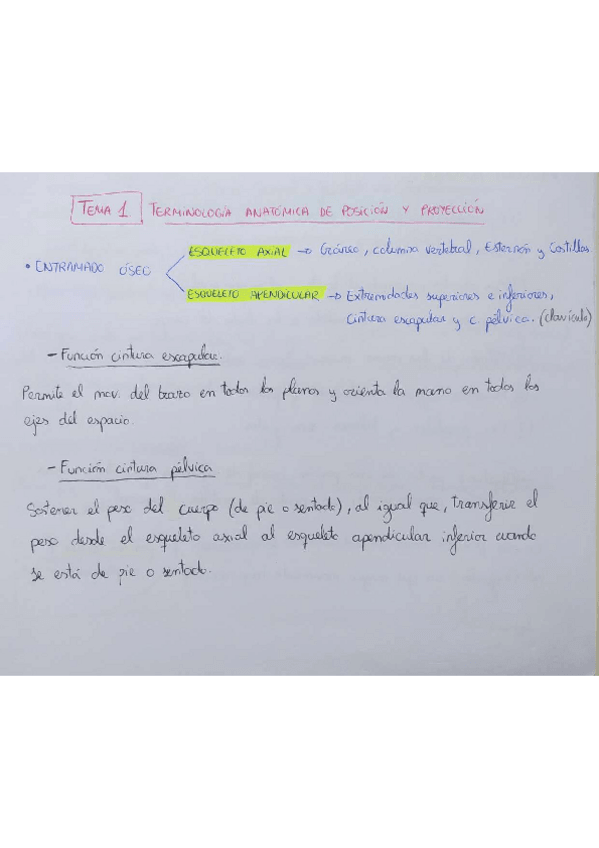 TEMA 1 TERMINOLOGÍA ANATÓMICA DE POSICIÓN Y PROYECCIÓN
ESQUELETO AXIAL → Cráneo, columna vertebral, Esternón y Costillas
• ENTRAMADO ÓSEO
ESQUELETO APENDICULAR → Extremidades superiores e inferiores,
Cintura escapular y c. pélvica. (clavícula)
- Función cintura escapular.
Permite el mov. del brazo en todos los planos y orienta la mano en todos los
ejes del espacio.
- Función cintura pélvica
Sostener el peso del cuerpo (de pie o sentado), al igual que, transferir el
peso desde el esqueleto axial al esqueleto apendicular inferior cuando
se está de pie o sentado.